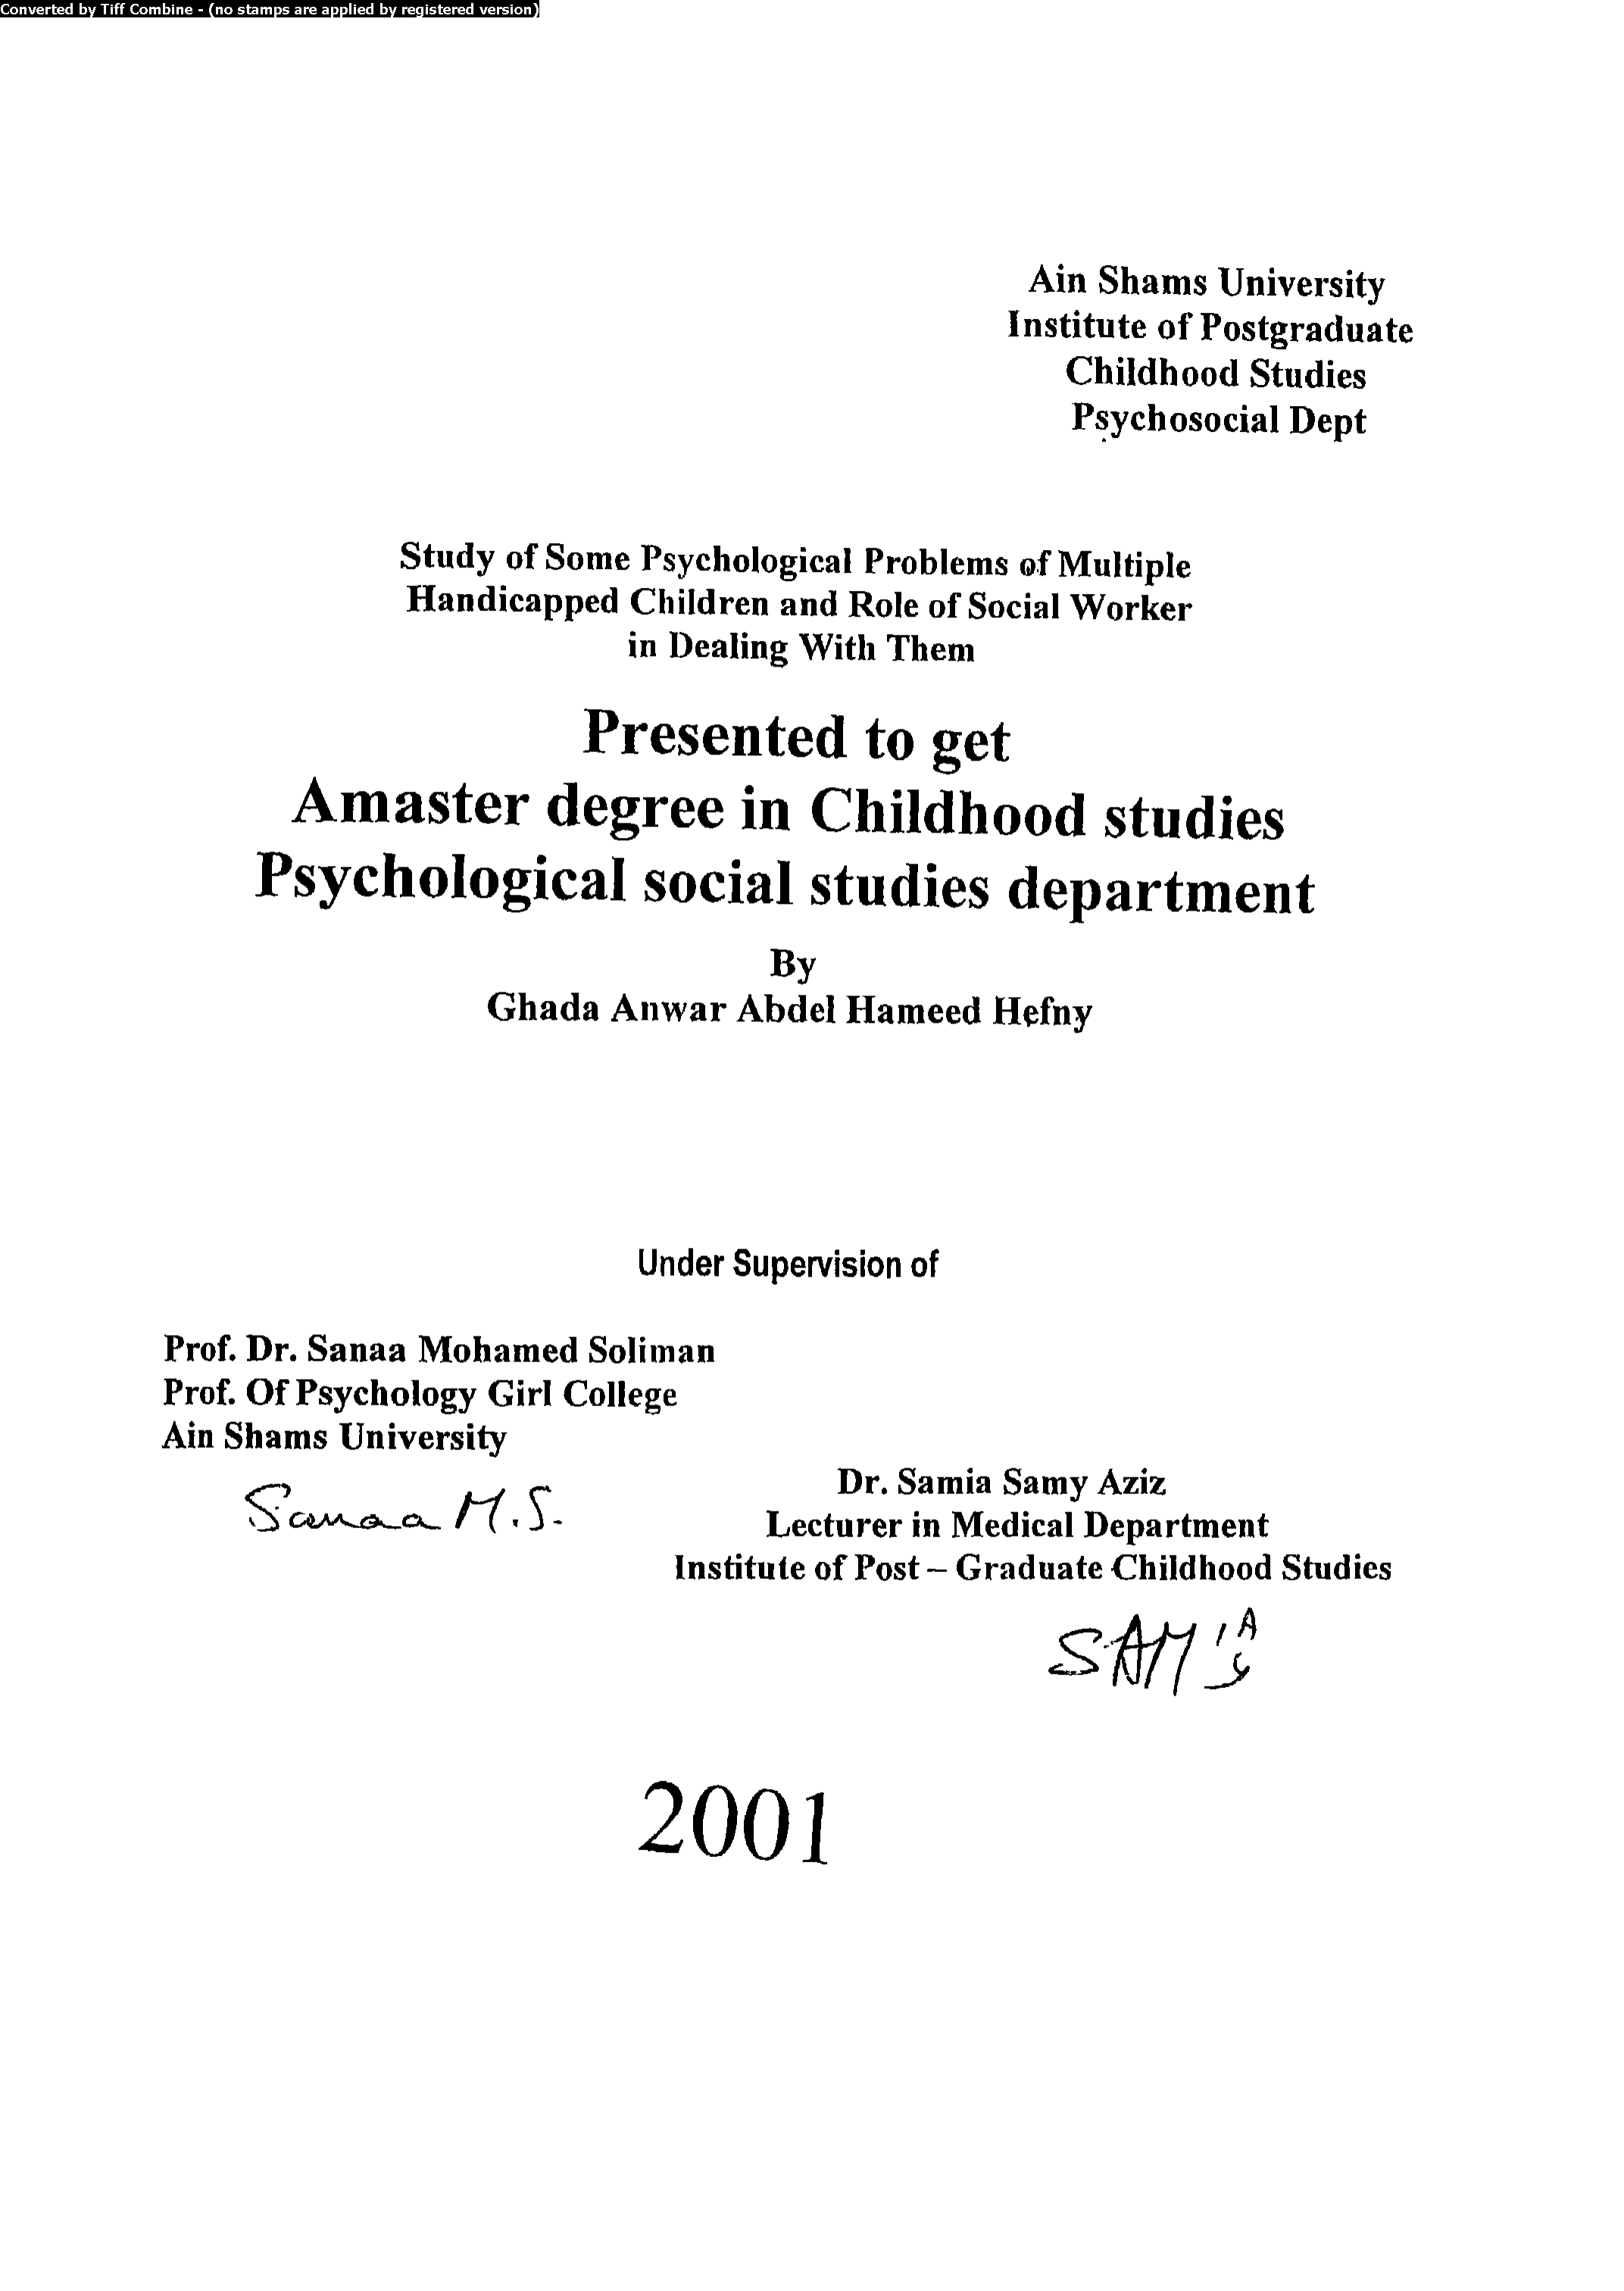 Converted by Tiff Combine - (no stamps are applied by registered version)
Ain Shams University
Institute of Postgraduate
Childhood Studies
Psychosocial Dept
Study of Some Psychological Problems of Multiple
Handicapped Children and Role of Social Worker
in Dealing With Them
Presented to get
Amaster degree in Childhood studies
Psychological social studies department
By
Ghada Anwar Abdel Hameed Hefny
Under Supervision of
Prof. Dr. Sanaa Mohamed Soliman
Prof. Of Psychology Girl College
Ain Shams University
Sanaa M.S.
Dr. Samia Samy Aziz
Lecturer in Medical Department
Institute of Post – Graduate Childhood Studies
SAMIA
2001